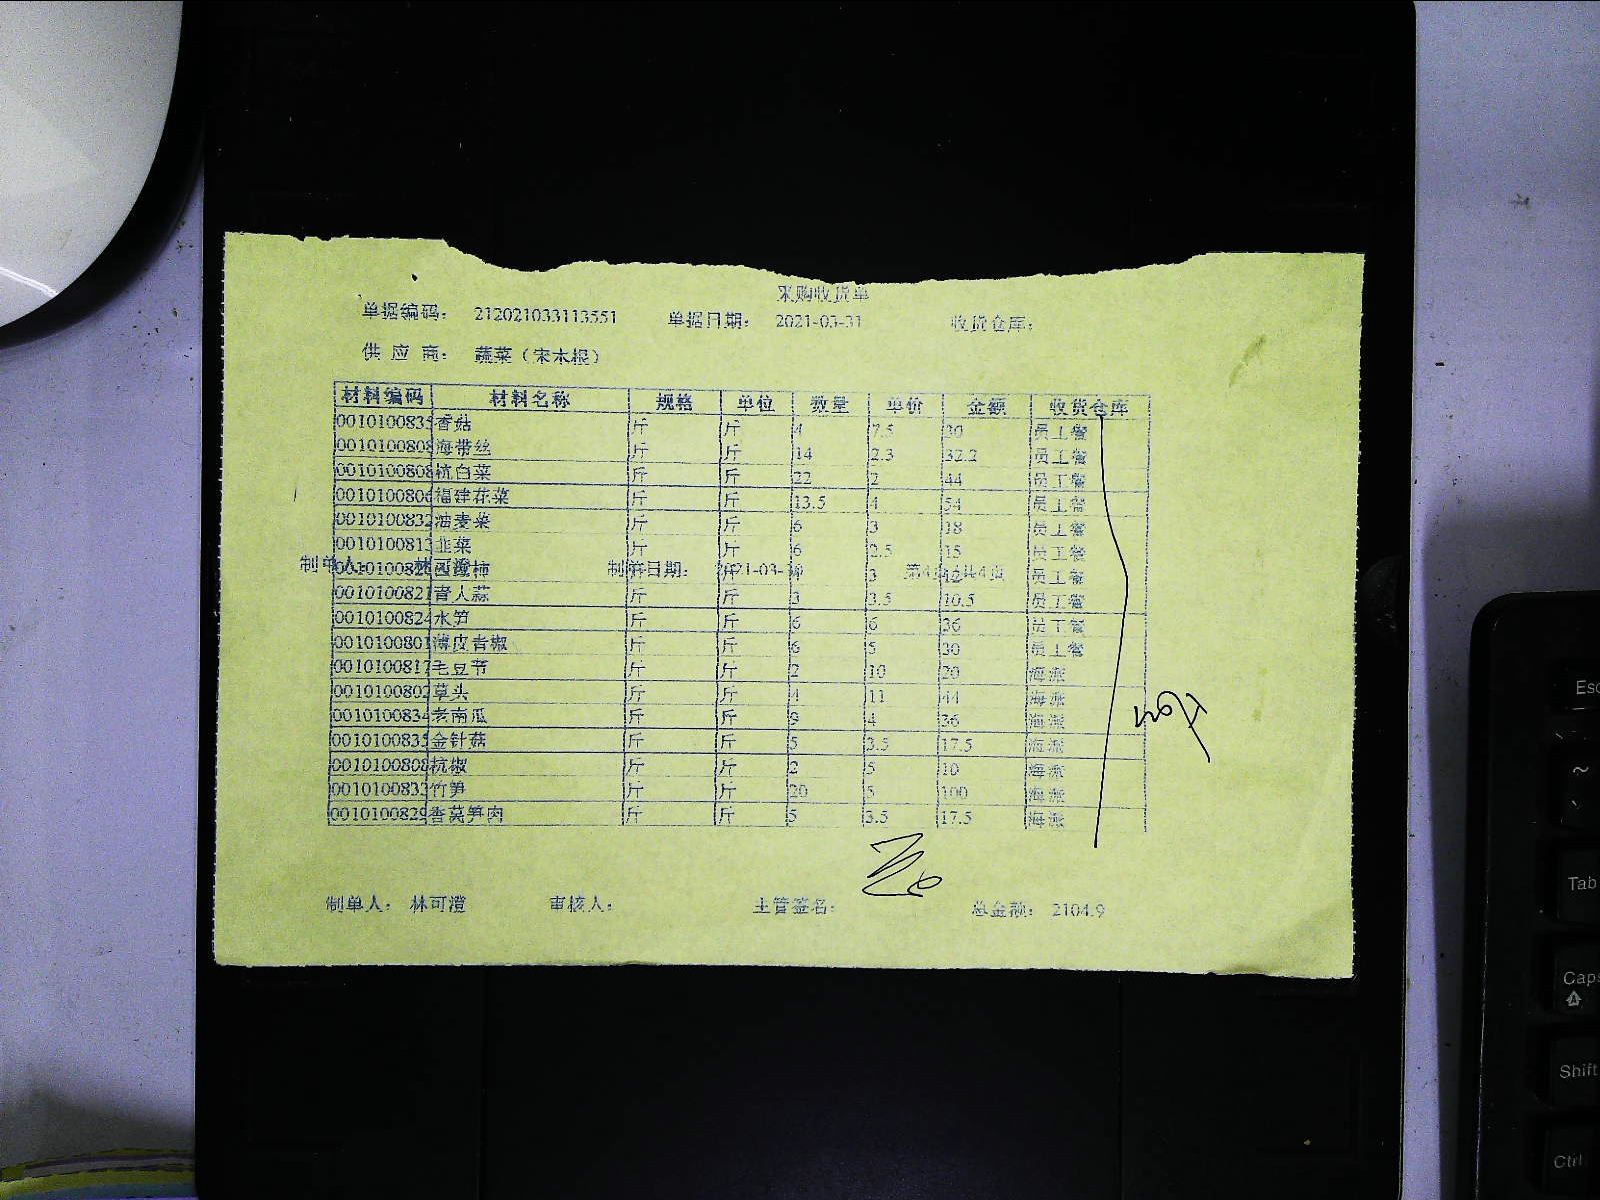 采购收货单
单据编码： 212021033113551 单据日期： 2021-03-31 收货仓库：
供 应 商： 蔬菜（宋木根）
材料编码 材料名称 规格 单位 数量 单价 金额 收货仓库
0010100835 香菇 斤 斤 4 7.5 30 员工餐
0010100808 海带丝 斤 斤 14 2.3 32.2 员工餐
0010100808 杭白菜 斤 斤 22 2 44 员工餐
0010100806 福建花菜 斤 斤 13.5 4 54 员工餐
0010100832 油麦菜 斤 斤 6 3 18 员工餐
0010100813 韭菜 斤 斤 6 2.5 15 员工餐
制单人： 林可澄 制单日期： 共4页
斤 3 员工餐
0010100821 青大蒜 斤 斤 3 3.5 10.5 员工餐
0010100824 水笋 斤 斤 6 6 36 员工餐
0010100801 薄皮青椒 斤 斤 6 5 30 员工餐
0010100817 毛豆节 斤 斤 2 10 20 海派
0010100802 草头 斤 斤 4 11 44 海派
0010100834 老南瓜 斤 斤 9 4 36 海派
0010100835 金针菇 斤 斤 5 3.5 17.5 海派
0010100808 杭椒 斤 斤 2 5 10 海派
0010100833 竹笋 斤 斤 20 5 100 海派
0010100829 香莴笋肉 斤 斤 5 3.5 17.5 海派
制单人： 林可澄 审核人： 主管签名： 总金额： 2104.9
Esc
~
Tab
Caps
Shift
Ctrl